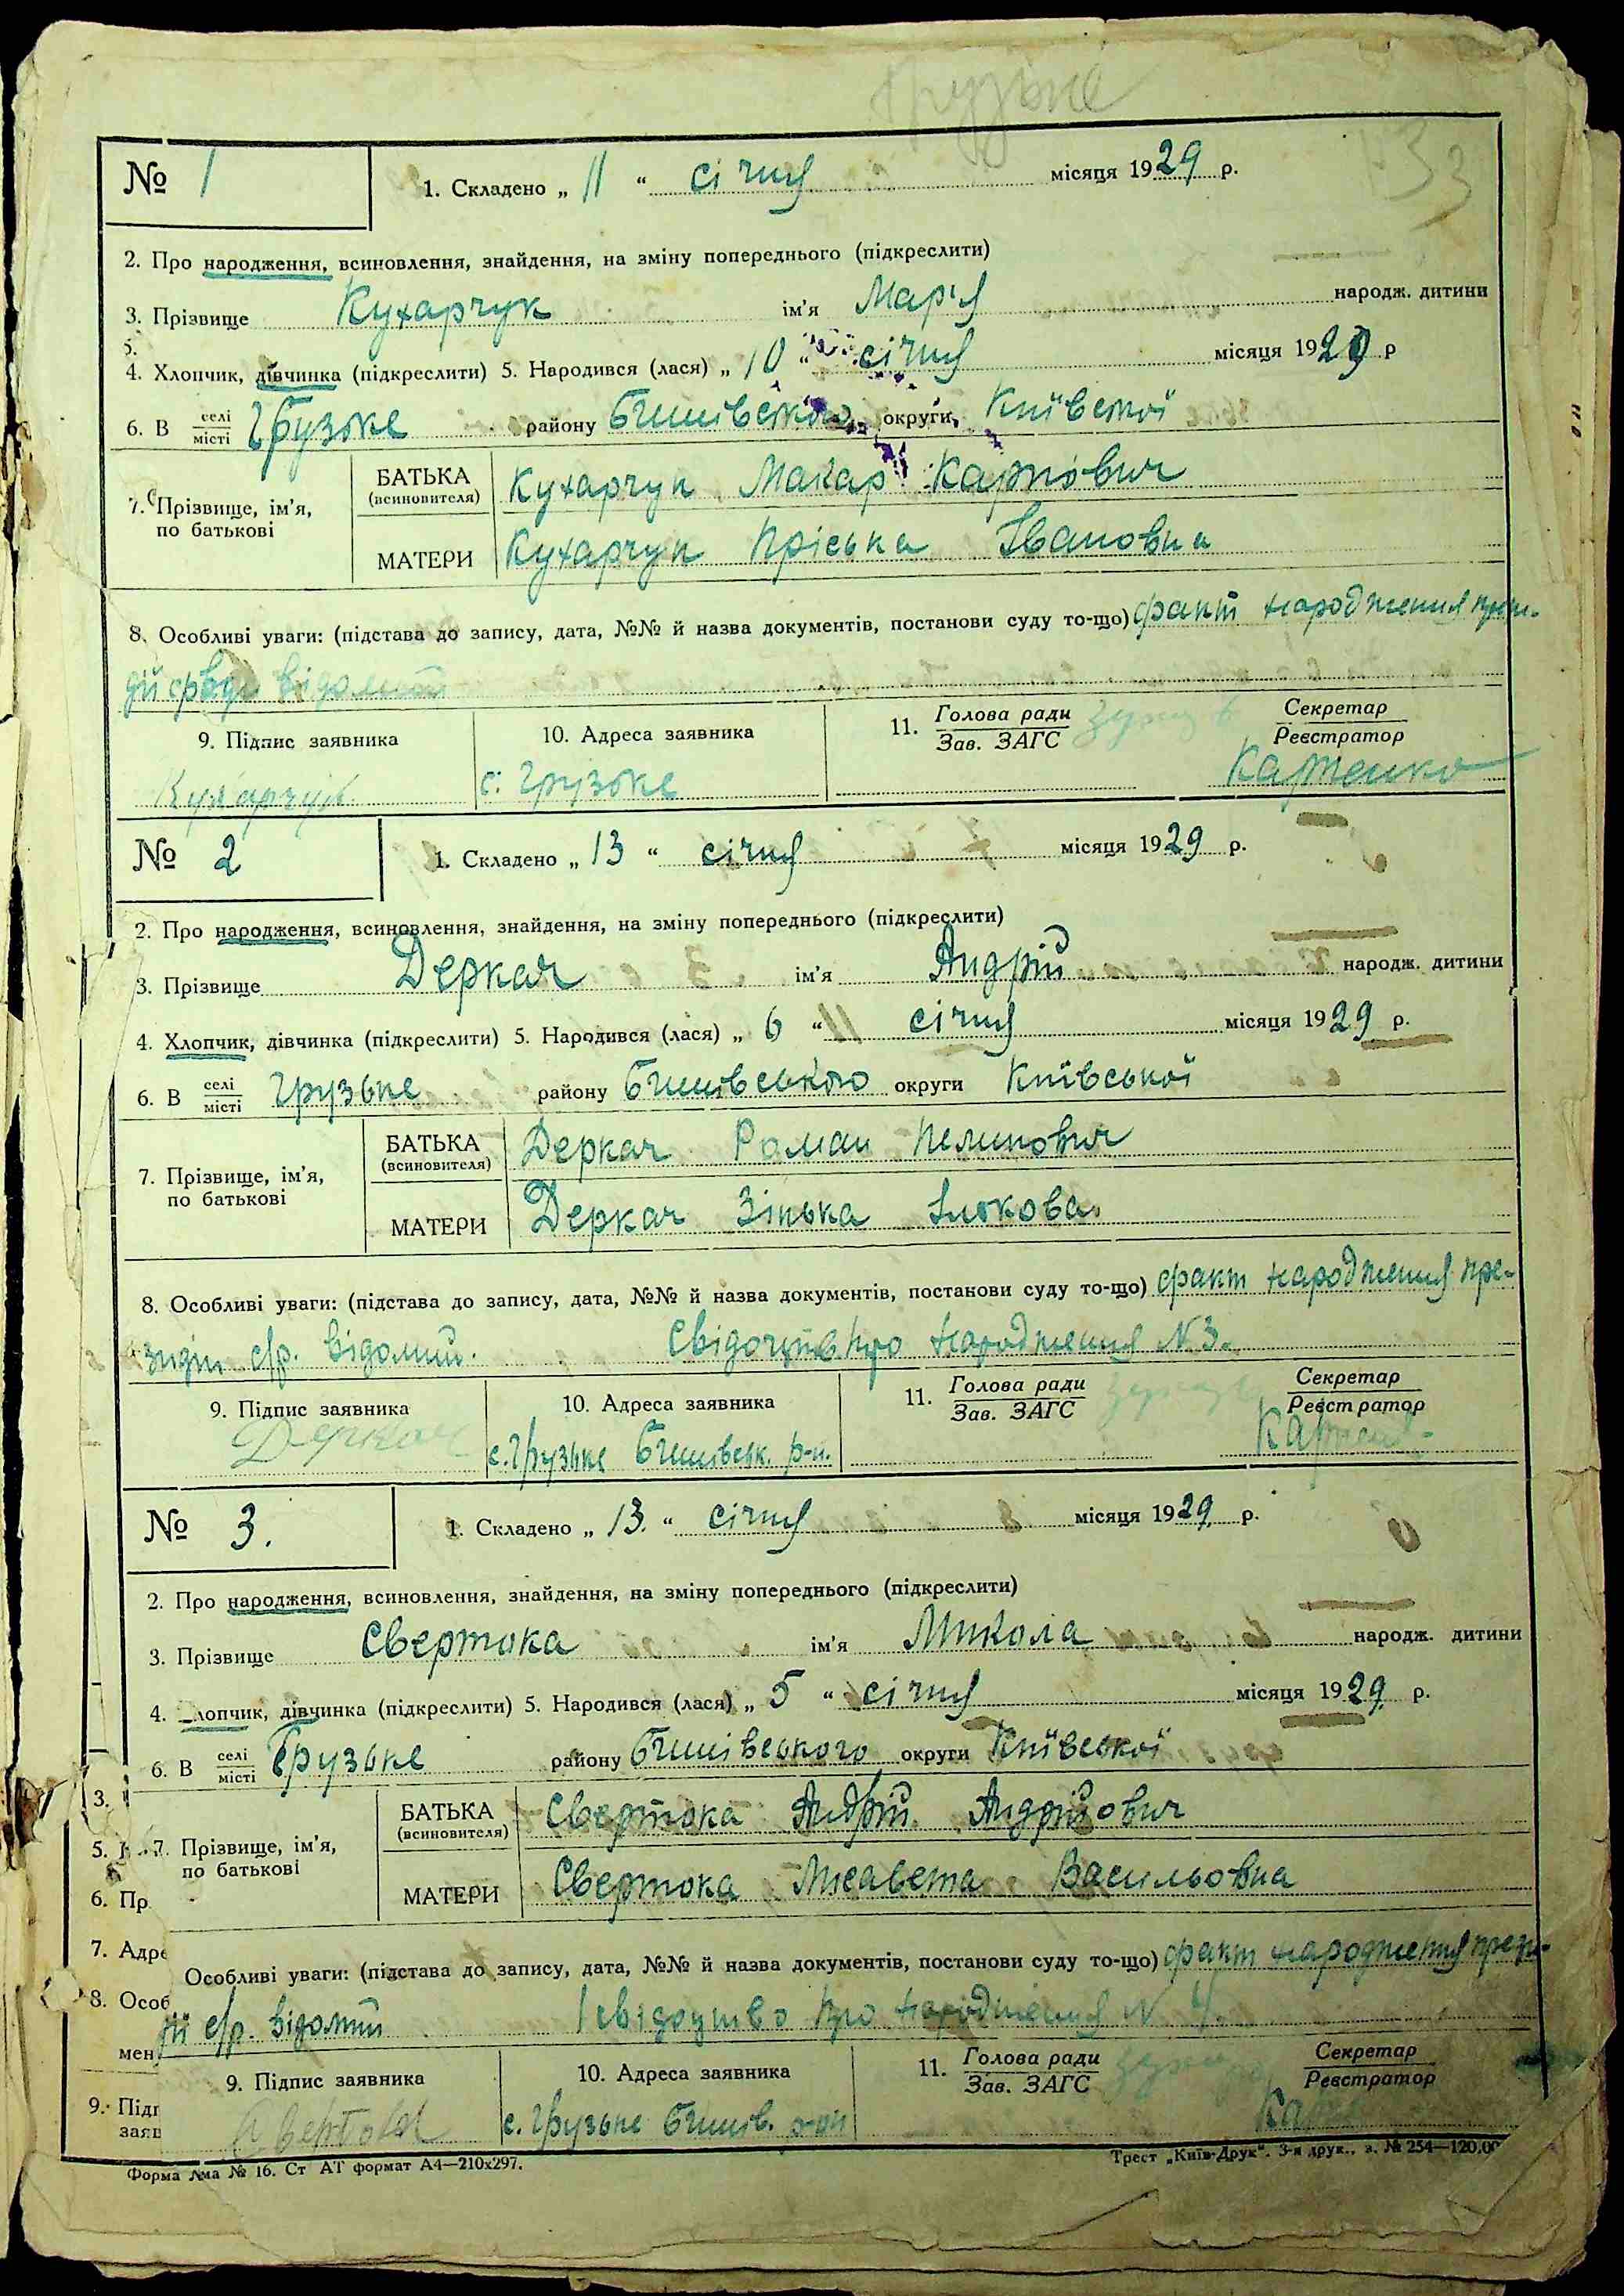 Грузьке
33
№ 1
1. Складено „ 11 “ січня місяця 1929 р.
2. Про народження, всиновлення, знайдення, на зміну попереднього (підкреслити)
3. Прізвище Кухарчук ім’я Мар'я народж. дитини
5.
4. Хлопчик, дівчинка (підкреслити) 5. Народився (лася) „ 10 “ січня місяця 1929 р
6. В селі/місті Грузьке району Бишівського округи Київської
7. Прізвище, ім’я, по батькові
БАТЬКА (всиновителя) Кухарчук Макар Карпович
МАТЕРИ Кухарчук Пріська Івановна
8. Особливі уваги: (підстава до запису, дата, №№ й назва документів, постанови суду то-що) факт народження прези-
дії с/ради відомий
9. Підпис заявника
10. Адреса заявника
11. Голова ради/Зав. ЗАГС
Секретар/Реєстратор
Кухарчук
с. Грузьке
Карпенко
№ 2
1. Складено „ 13 “ січня місяця 1929 р.
2. Про народження, всиновлення, знайдення, на зміну попереднього (підкреслити)
3. Прізвище Деркач ім’я Андрій народж. дитини
4. Хлопчик, дівчинка (підкреслити) 5. Народився (лася) „ 6 “ січня місяця 1929 р.
6. В селі/місті Грузьке району Бишівського округи Київської
7. Прізвище, ім’я, по батькові
БАТЬКА (всиновителя) Деркач Роман Пелипович
МАТЕРИ Деркач Зінька
8. Особливі уваги: (підстава до запису, дата, №№ й назва документів, постанови суду то-що) факт народження пре-
зидії с/р. відомий. Свідоцтв про народження N. 3.
9. Підпис заявника
10. Адреса заявника
11. Голова ради/Зав. ЗАГС
Секретар/Реєстратор
Деркач
с. Грузьке Бишівськ. р-н.
№ 3.
1. Складено „ 13. “ січня місяця 1929 р.
2. Про народження, всиновлення, знайдення, на зміну попереднього (підкреслити)
3. Прізвище Свертока ім’я Микола народж. дитини
4. лопчик, дівчинка (підкреслити) 5. Народився (лася) „ 5 “ січня місяця 1929 р.
6. В селі/місті Грузьке району Бишівського округи Київської
3.
5.
7. Прізвище, ім’я, по батькові
БАТЬКА (всиновителя) Свертока Андрій Андрійович
6. Пр
МАТЕРИ Свертока Лисавета Васильовна
7. Адре
Особливі уваги: (підстава до запису, дата, №№ й назва документів, постанови суду то-що) факт народження прези-
8. Особ
дії с/р. відомий Свідоцтво про народження N 4.
мен
9. Підпис заявника
10. Адреса заявника
11. Голова ради/Зав. ЗАГС
Секретар/Реєстратор
9. Підп
заяв
Свертока
с. Грузьке Бишів. р-н
Форма № 16. Ст АТ формат А4—210х297.
Трест „Київ-Друк“. 3-я друк., з. № 254—120.00